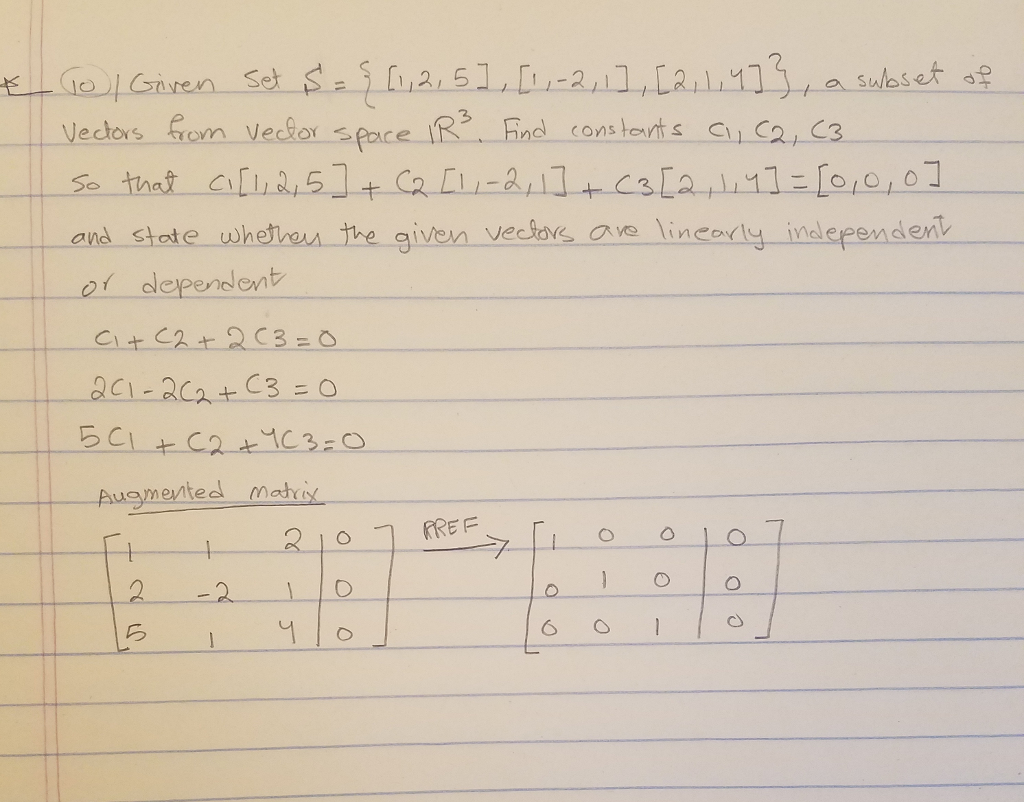 * (10) / Given Set S = { [1,2,5], [1,-2,1], [2,1,4] }, a subset of
Vectors from vector space ℝ³. Find constants C1, C2, C3
So that C1[1,2,5] + C2[1,-2,1] + C3[2,1,4] = [0,0,0]
and state whether the given vectors are linearly independent
or dependent
C1 + C2 + 2C3 = 0
2C1 - 2C2 + C3 = 0
5C1 + C2 + 4C3 = 0
Augmented matrix
[ 1 1 2 | 0 ] RREF → [ 1 0 0 | 0 ]
[ 2 -2 1 | 0 ] [ 0 1 0 | 0 ]
[ 5 1 4 | 0 ] [ 0 0 1 | 0 ]